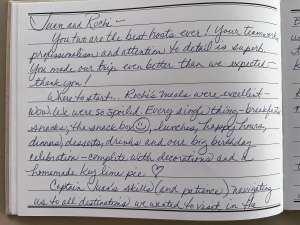 Juan and Rochi –
You two are the best hosts ever! Your teamwork,
professionalism and attention to detail is superb.
You made our trip even better than we expected –
thank you!
Where to start.. Rochi's meals were excellent –
Wow! We were so spoiled. Every single thing – breakfasts
snacks, the snack box ☺, lunches, happy hours,
dinners, desserts, drinks and our big birthday
celebration – complete with decorations and a
homemade key lime pie ♡
Captain Juan's skills (and patience) navigating
us to all destinations we wanted to visit in the